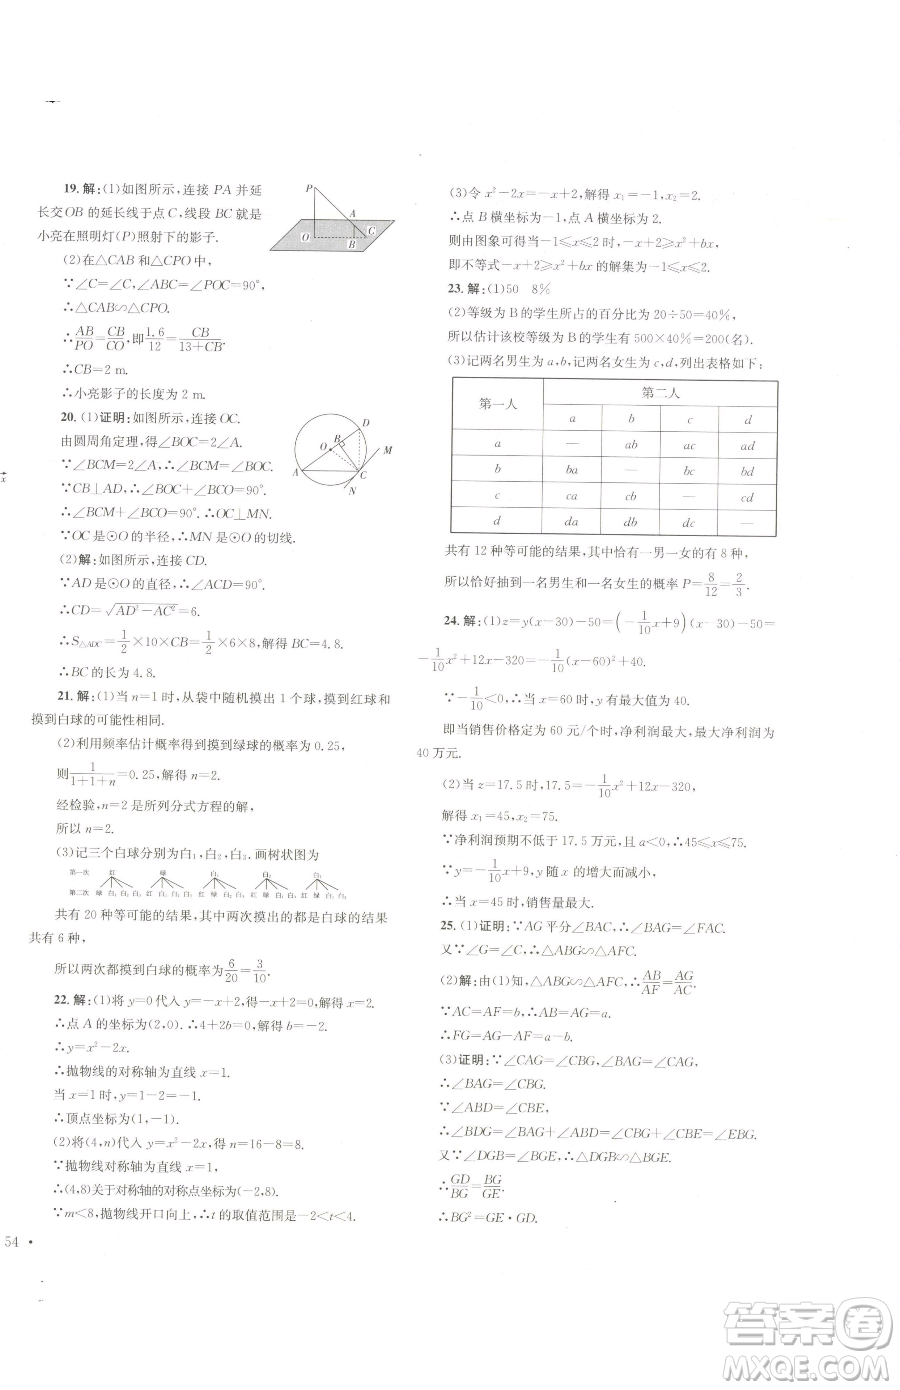 19. 解:(1)如图所示,连接 PA 并延
长交OB 的延长线于点 C,线段 BC 就是
小亮在照明灯(P)照射下的影子.
P
A
O
B
C
(2)在△CAB和△CPO中,
∵∠C=∠C,∠ABC=∠POC=90°,
∴△CAB∽△CPO.
∴AB/PO=CB/CO,即1.6/12=CB/(13+CB).
∴CB=2 m.
∴小亮影子的长度为 2 m.
20. (1)证明:如图所示,连接OC.
由圆周角定理,得∠BOC=2∠A.
∵∠BCM=2∠A,∴∠BCM=∠BOC.
∵CB⊥AD,∴∠BOC+∠BCO=90°.
∴∠BCM+∠BCO=90°. ∴OC⊥MN.
∵OC是⊙O的半径,∴MN是⊙O的切线.
D
B
M
O
A
C
N
(2)解:如图所示,连接 CD.
∵AD是⊙O的直径,∴∠ACD=90°.
∴CD=√(AD²-AC²)=6.
∴S△ADC=1/2×10×CB=1/2×6×8,解得 BC=4.8.
∴BC 的长为 4.8.
21. 解:(1)当 n=1时,从袋中随机摸出 1 个球,摸到红球和
摸到白球的可能性相同.
(2)利用频率估计概率得摸到绿球的概率为 0.25,
则1/(1+1+n)=0.25,解得 n=2.
经检验,n=2 是所列分式方程的解,
所以 n=2.
(3)记三个白球分别为白₁,白₂,白₃. 画树状图为
第一次 红 绿 白₁ 白₂ 白₃
第二次 绿 白₁ 白₂ 白₃ 红 白₁ 白₂ 白₃ 红 绿 白₂ 白₃ 红 绿 白₁ 白₃ 红 绿 白₁ 白₂
共有 20 种等可能的结果,其中两次摸出的都是白球的结果
共有 6 种,
所以两次都摸到白球的概率为6/20=3/10.
22. 解:(1)将 y=0代入 y=-x+2,得-x+2=0,解得 x=2.
∴点 A 的坐标为(2,0). ∴4+2b=0,解得 b=-2.
∴y=x²-2x.
∴抛物线的对称轴为直线 x=1.
当 x=1时,y=1-2=-1,
∴顶点坐标为(1,-1).
(2)将(4,n)代入 y=x²-2x,得 n=16-8=8.
∵抛物线对称轴为直线 x=1,
∴(4,8)关于对称轴的对称点坐标为(-2,8).
∵m<8,抛物线开口向上,∴t的取值范围是-2<t<4.
54 •
(3)令 x²-2x=-x+2,解得 x₁=-1,x₂=2.
∴点 B 横坐标为-1,点 A 横坐标为 2.
则由图象可得当-1≤x≤2 时,-x+2≥x²+bx,
即不等式-x+2≥x²+bx 的解集为-1≤x≤2.
23. 解:(1)50 8%
(2)等级为 B 的学生所占的百分比为 20÷50=40%,
所以估计该校等级为 B 的学生有 500×40%=200(名).
(3)记两名男生为 a,b,记两名女生为 c,d,列出表格如下:
第一人 第二人
a b c d
a — ab ac ad
b ba — bc bd
c ca cb — cd
d da db dc —
共有 12 种等可能的结果,其中恰有一男一女的有 8 种,
所以恰好抽到一名男生和一名女生的概率 P=8/12=2/3.
24. 解:(1)z=y(x-30)-50=(-1/10x+9)(x-30)-50=
-1/10x²+12x-320=-1/10(x-60)²+40.
∵-1/10<0,∴当 x=60时,y有最大值为 40.
即当销售价格定为 60 元/个时,净利润最大,净利润最大为
40 万元.
(2)当 z=17.5时,17.5=-1/10x²+12x-320,
解得 x₁=45,x₂=75.
∵净利润预期不低于 17.5 万元,且 a<0,∴45≤x≤75.
∵y=-1/10x+9,y随 x 的增大而减小,
∴当 x=45时,销售量最大.
25. (1)证明:∵AG平分∠BAC,∴∠BAG=∠FAC.
又∵∠G=∠C,∴△ABG∽△AFC.
(2)解:由(1)知,△ABG∽△AFC,∴AB/AF=AG/AC.
∵AC=AF=b,∴AB=AG=a.
∴FG=AG-AF=a-b.
(3)证明:∵∠CAG=∠CBG,∠BAG=∠CAG,
∴∠BAG=∠CBG.
∵∠ABD=∠CBE,
∴∠BDG=∠BAG+∠ABD=∠CBG+∠CBE=∠EBG.
又∵∠DGB=∠BGE,∴△DGB∽△BGE.
∴GD/BG=BG/GE.
∴BG²=GE·GD.
答案圈
MXQE.COM